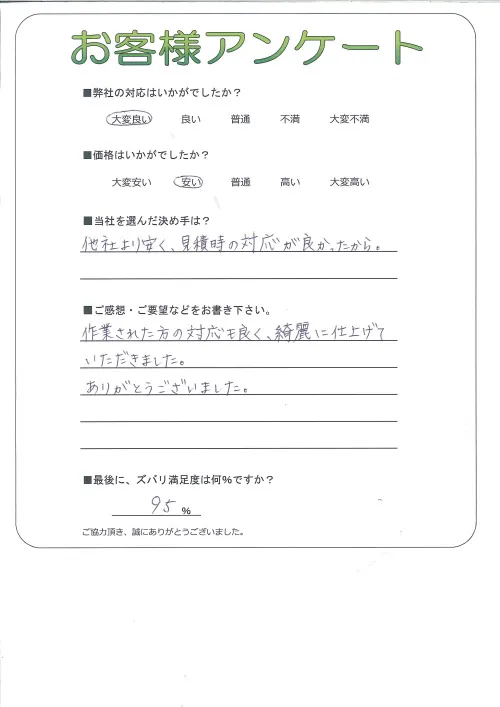 お客様アンケート
■弊社の対応はいかがでしたか？
大変良い 良い 普通 不満 大変不満
■価格はいかがでしたか？
大変安い 安い 普通 高い 大変高い
■当社を選んだ決め手は？
他社より安く、見積時の対応が良かったから。
■ご感想・ご要望などをお書き下さい。
作業された方の対応も良く、綺麗に仕上げて
いただきました。
ありがとうございました。
■最後に、ズバリ満足度は何％ですか？
95 ％
ご協力頂き、誠にありがとうございました。